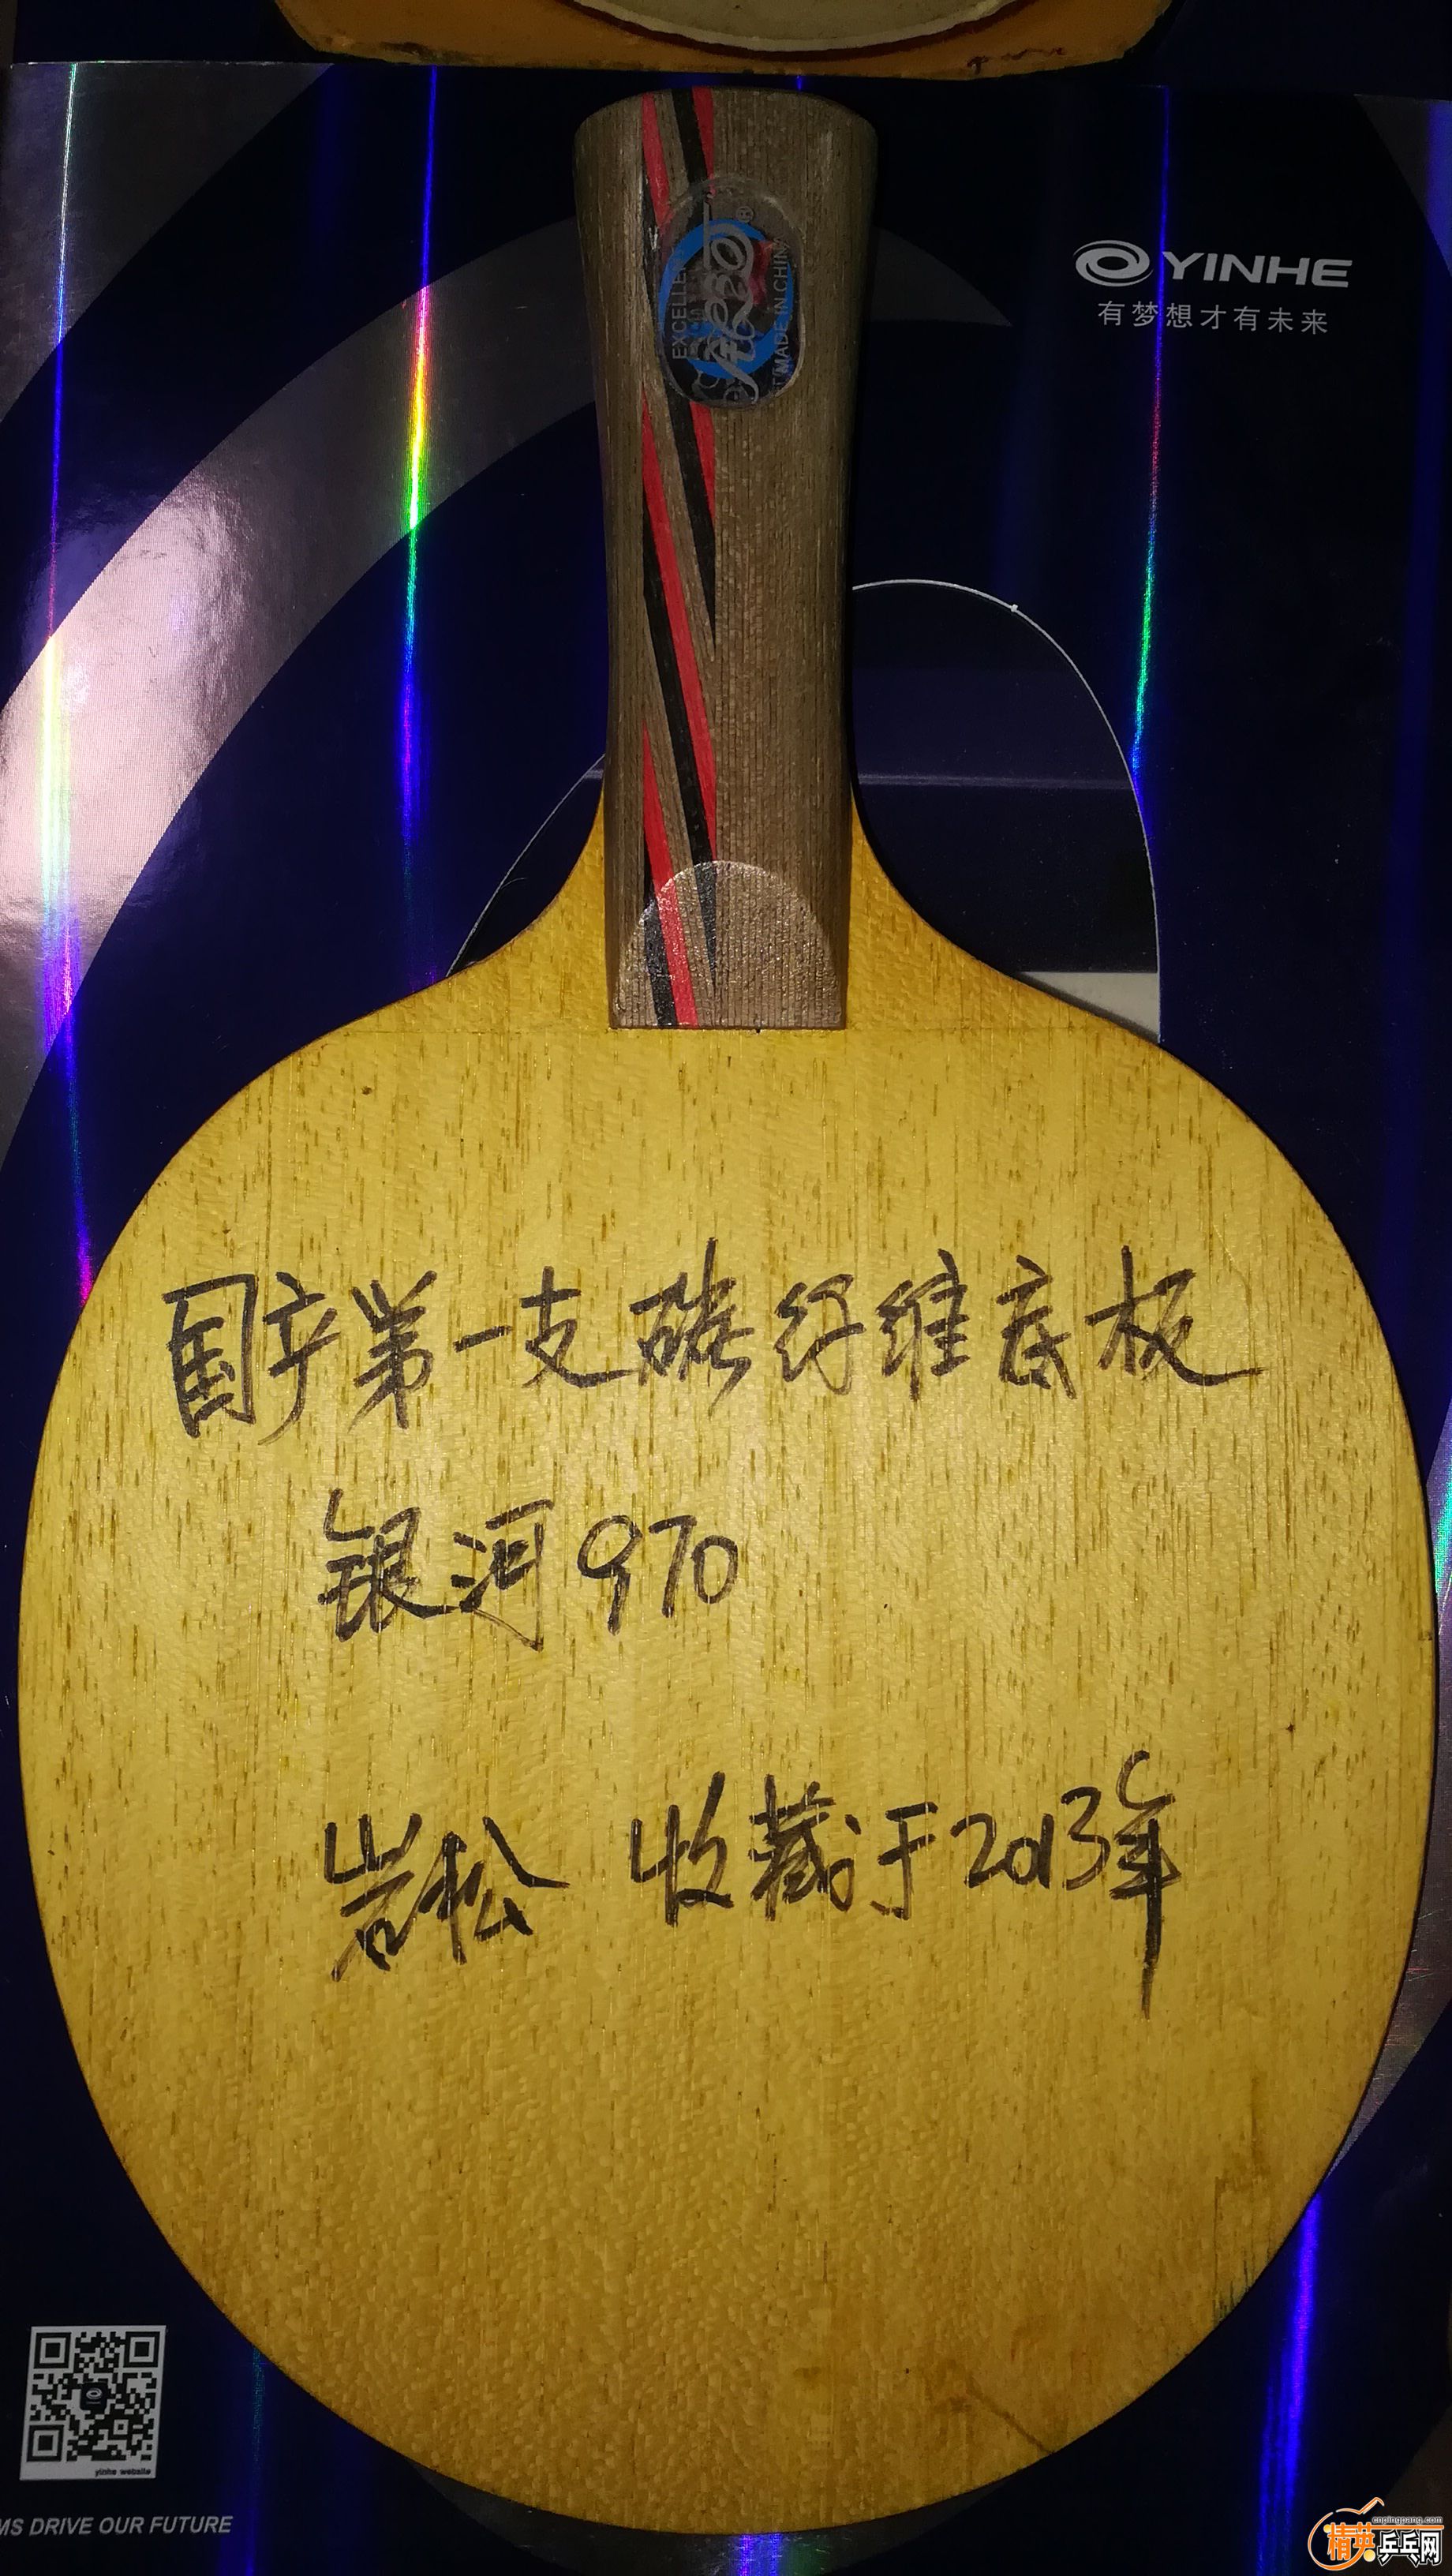 YINHE
有梦想才有未来
MADE IN CHINA
国产第一支碳纤维底板
银河970
岩松 收藏于2013年
yinhe website
MS DRIVE OUR FUTURE
cnpingpang.com
精英乒乓网